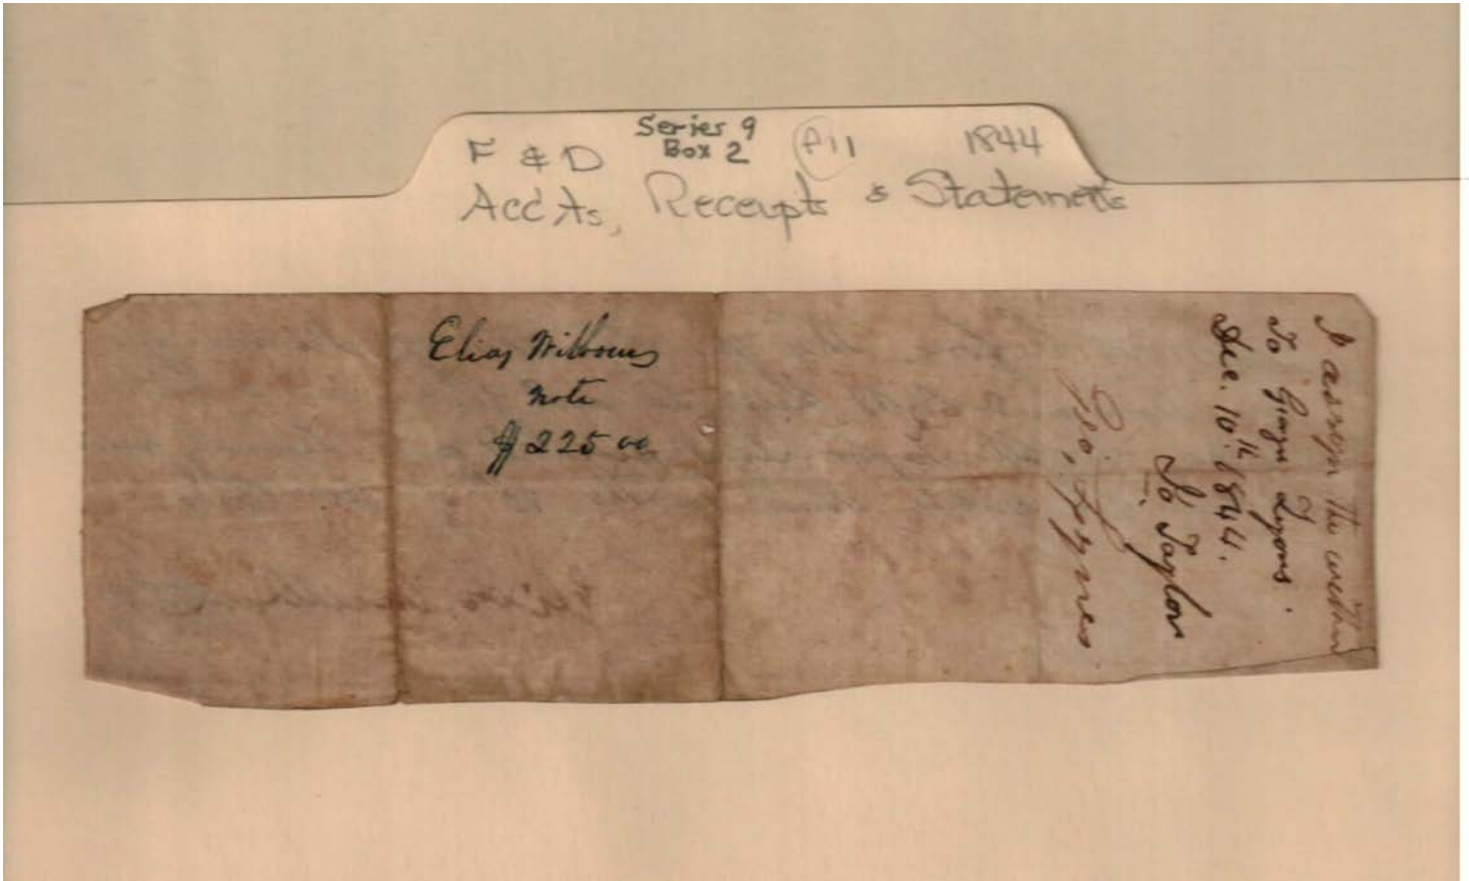 Series 9
F & D Box 2 A11 1844
Acc'ts, Receipts & Statements
Elias
note
$225 00
I assign the within
To George Lyons.
Dec. 10th 1844.
Taylor
Geo,